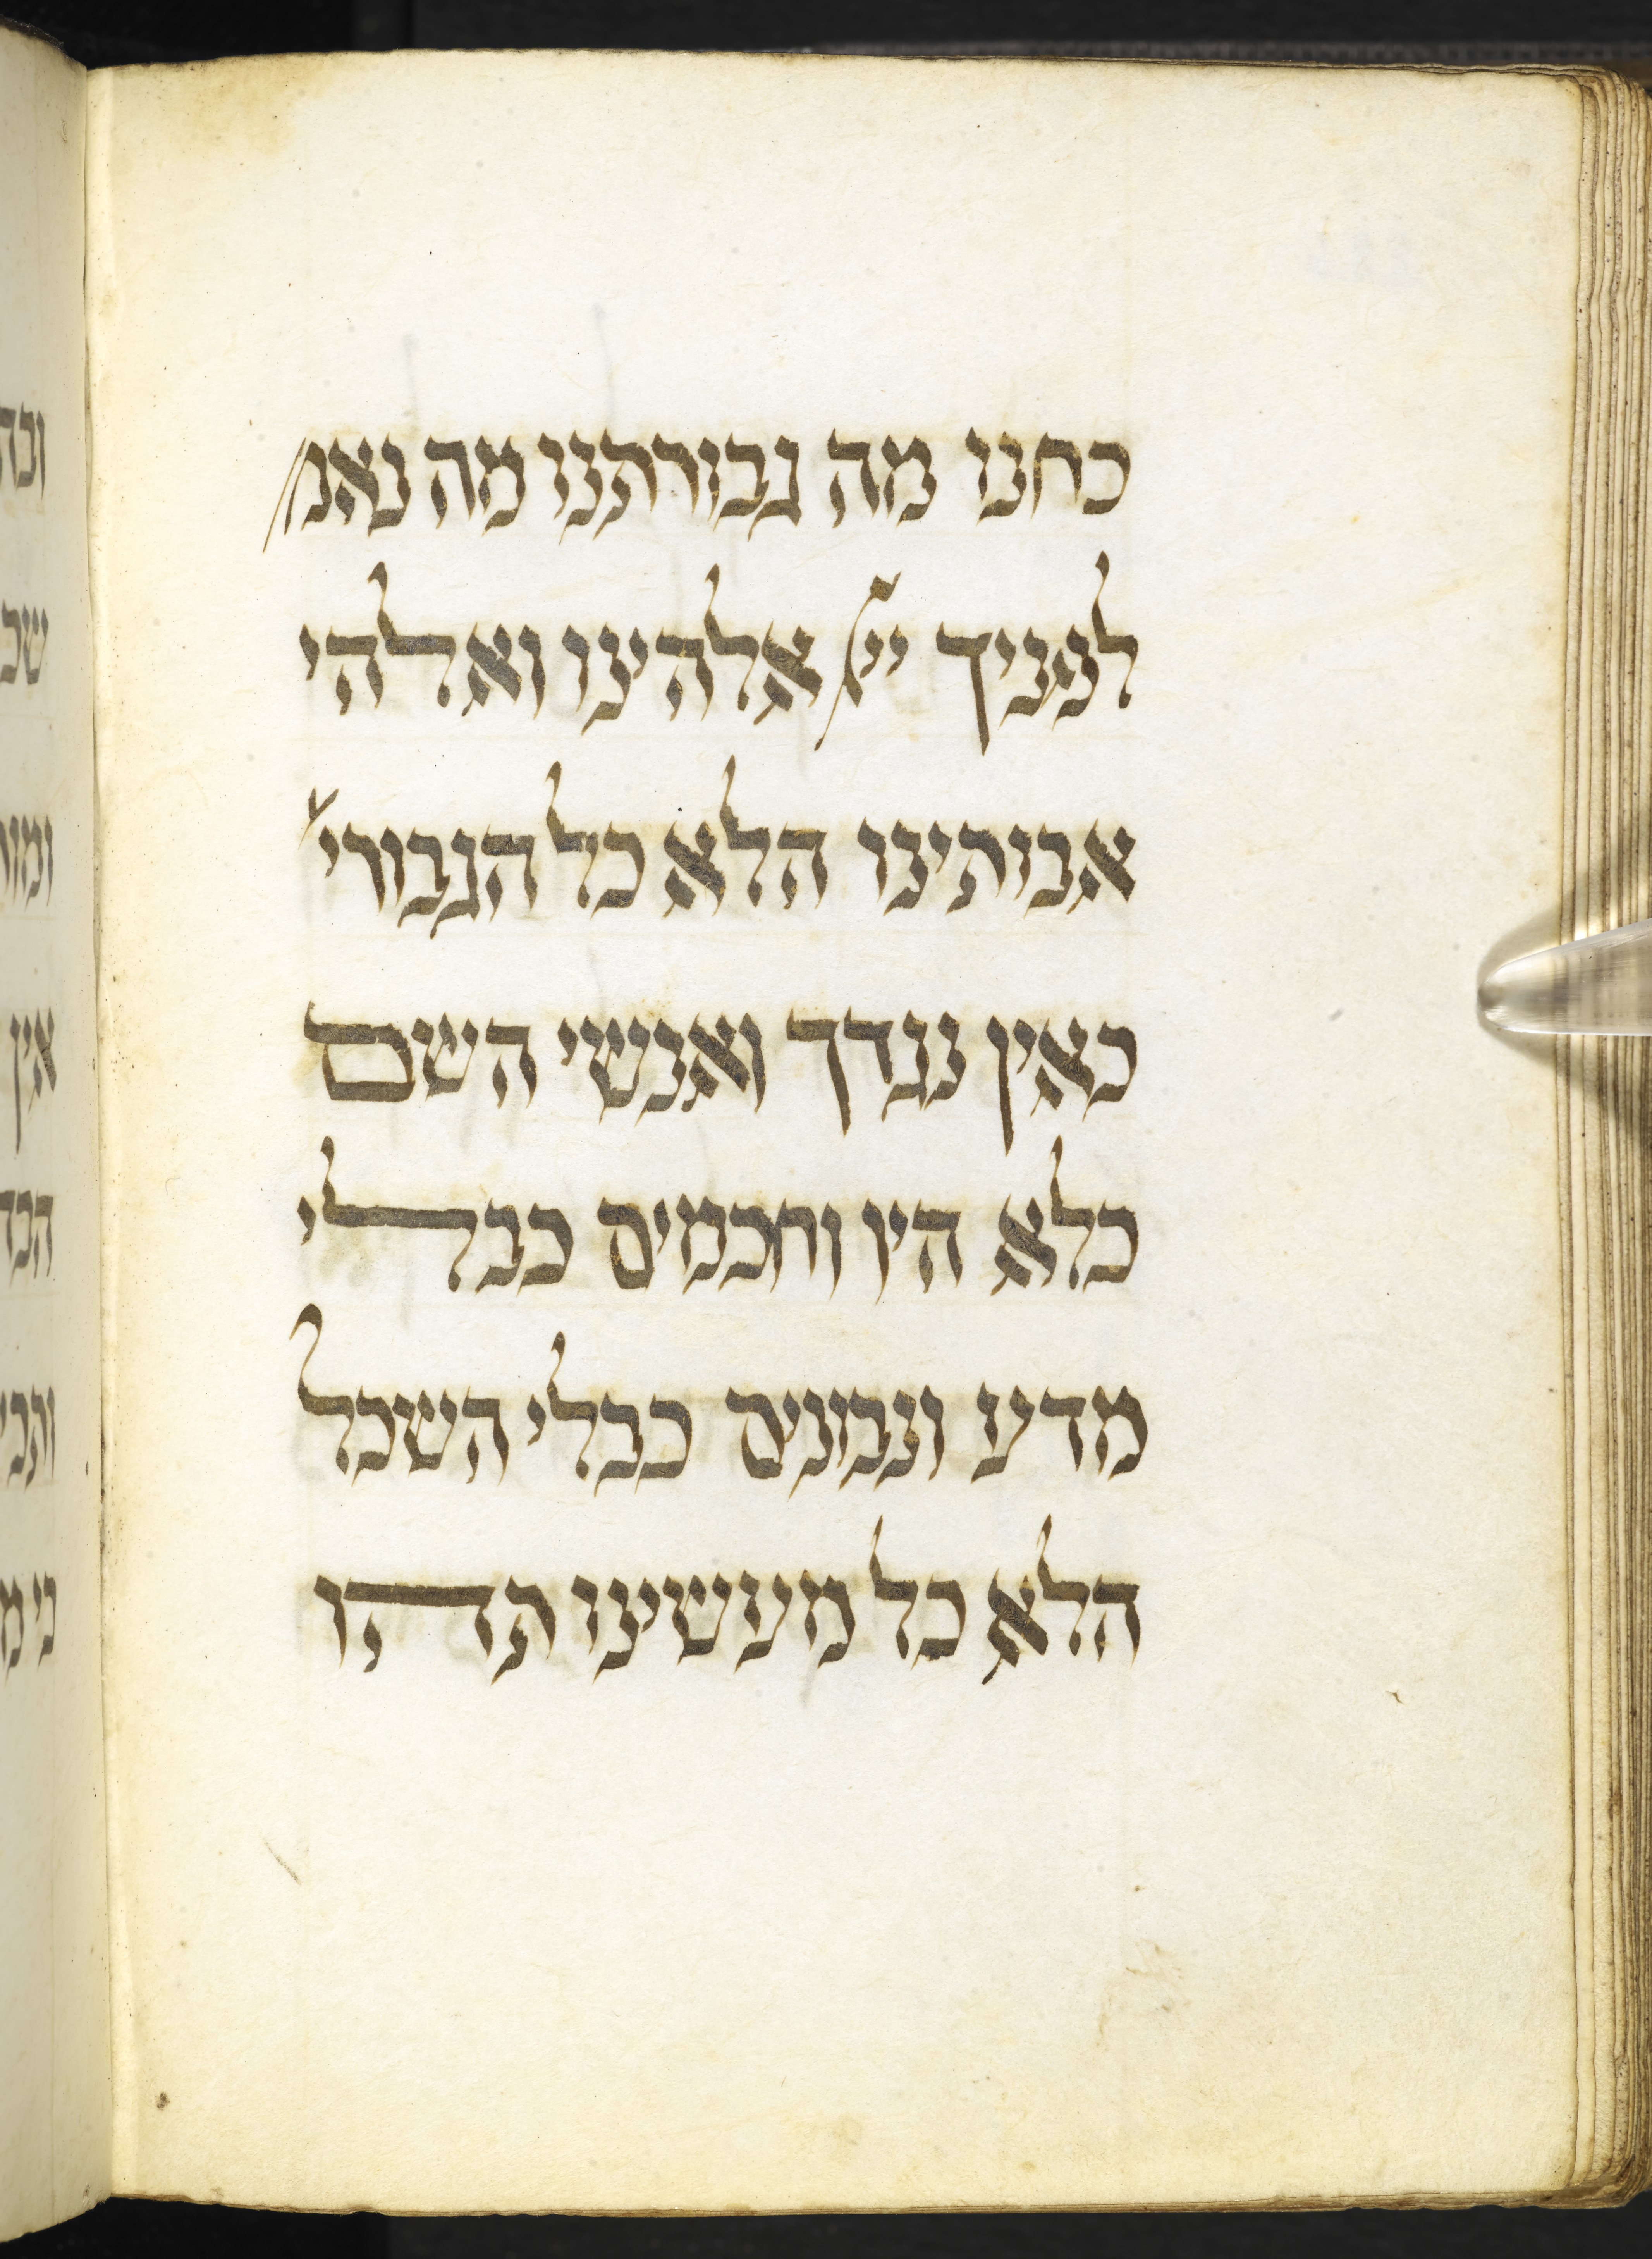 כחנו מה גבורתנו מה נאמ׳
לפניך ייי אלהינו ואלהי
אבותינו הלא כל הגבורי׳
כאין נגדך ואנשי השם
כלא היו וחכמים כבלי
מדע ונבונים כבלי השכל
הלא כל מעשינו תהו